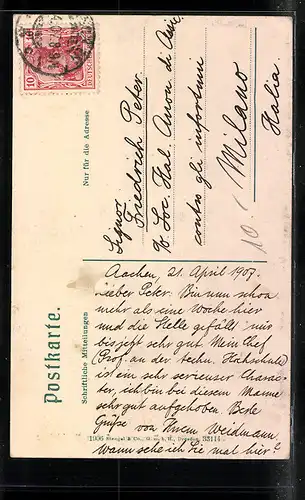 10
Postkarte.
Schriftliche Mitteilungen
Nur für die Adresse
Signor
Friedrich Peter.
Soc. Ital. Anon. di Assic.
contro gli infortuni
Milano
Italia.
10.
Aachen, 21. April 1907.
Lieber Peter. Bin nun schon
mehr als eine Woche hier
und die Stelle gefällt mir
bisjetzt sehr gut. Mein Chef
(Prof. an der techn. Hochschule)
ist ein sehr serieuser Charac-
ter, ich bin bei diesem Manne
sehr gut aufgehoben. Beste
Grüsse von Ihrem Weidmann,
wann sehe ich Sie mal hier?
1906 Stengel & Co., G.m.b.H., Dresden 33114